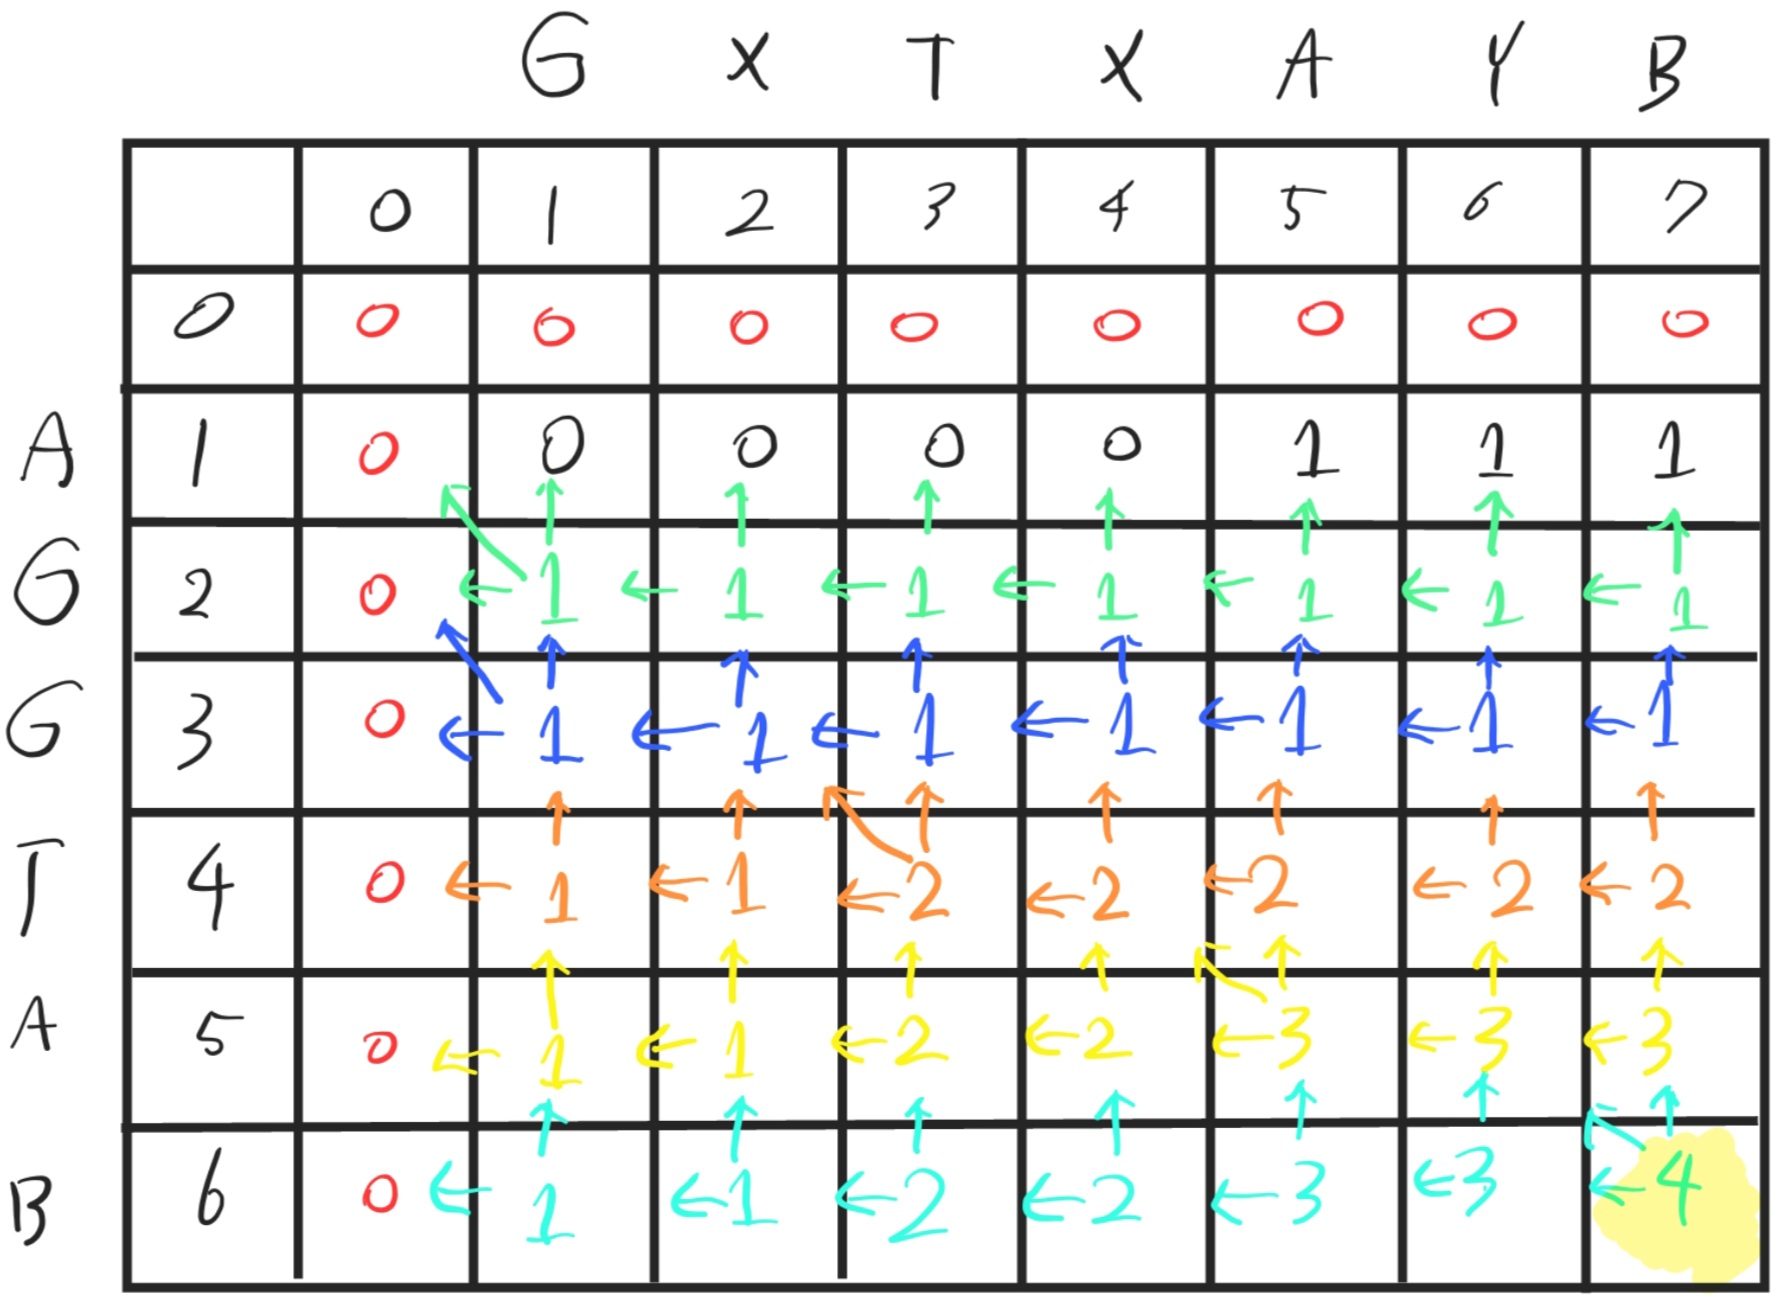 G X T X A Y B
0 1 2 3 4 5 6 7
0 0 0 0 0 0 0 0 0
A 1 0 0 0 0 0 1 1 1
G 2 0 1 1 1 1 1 1 1
G 3 0 1 1 1 1 1 1 1
T 4 0 1 1 2 2 2 2 2
A 5 0 1 1 2 2 3 3 3
B 6 0 1 1 2 2 3 3 4